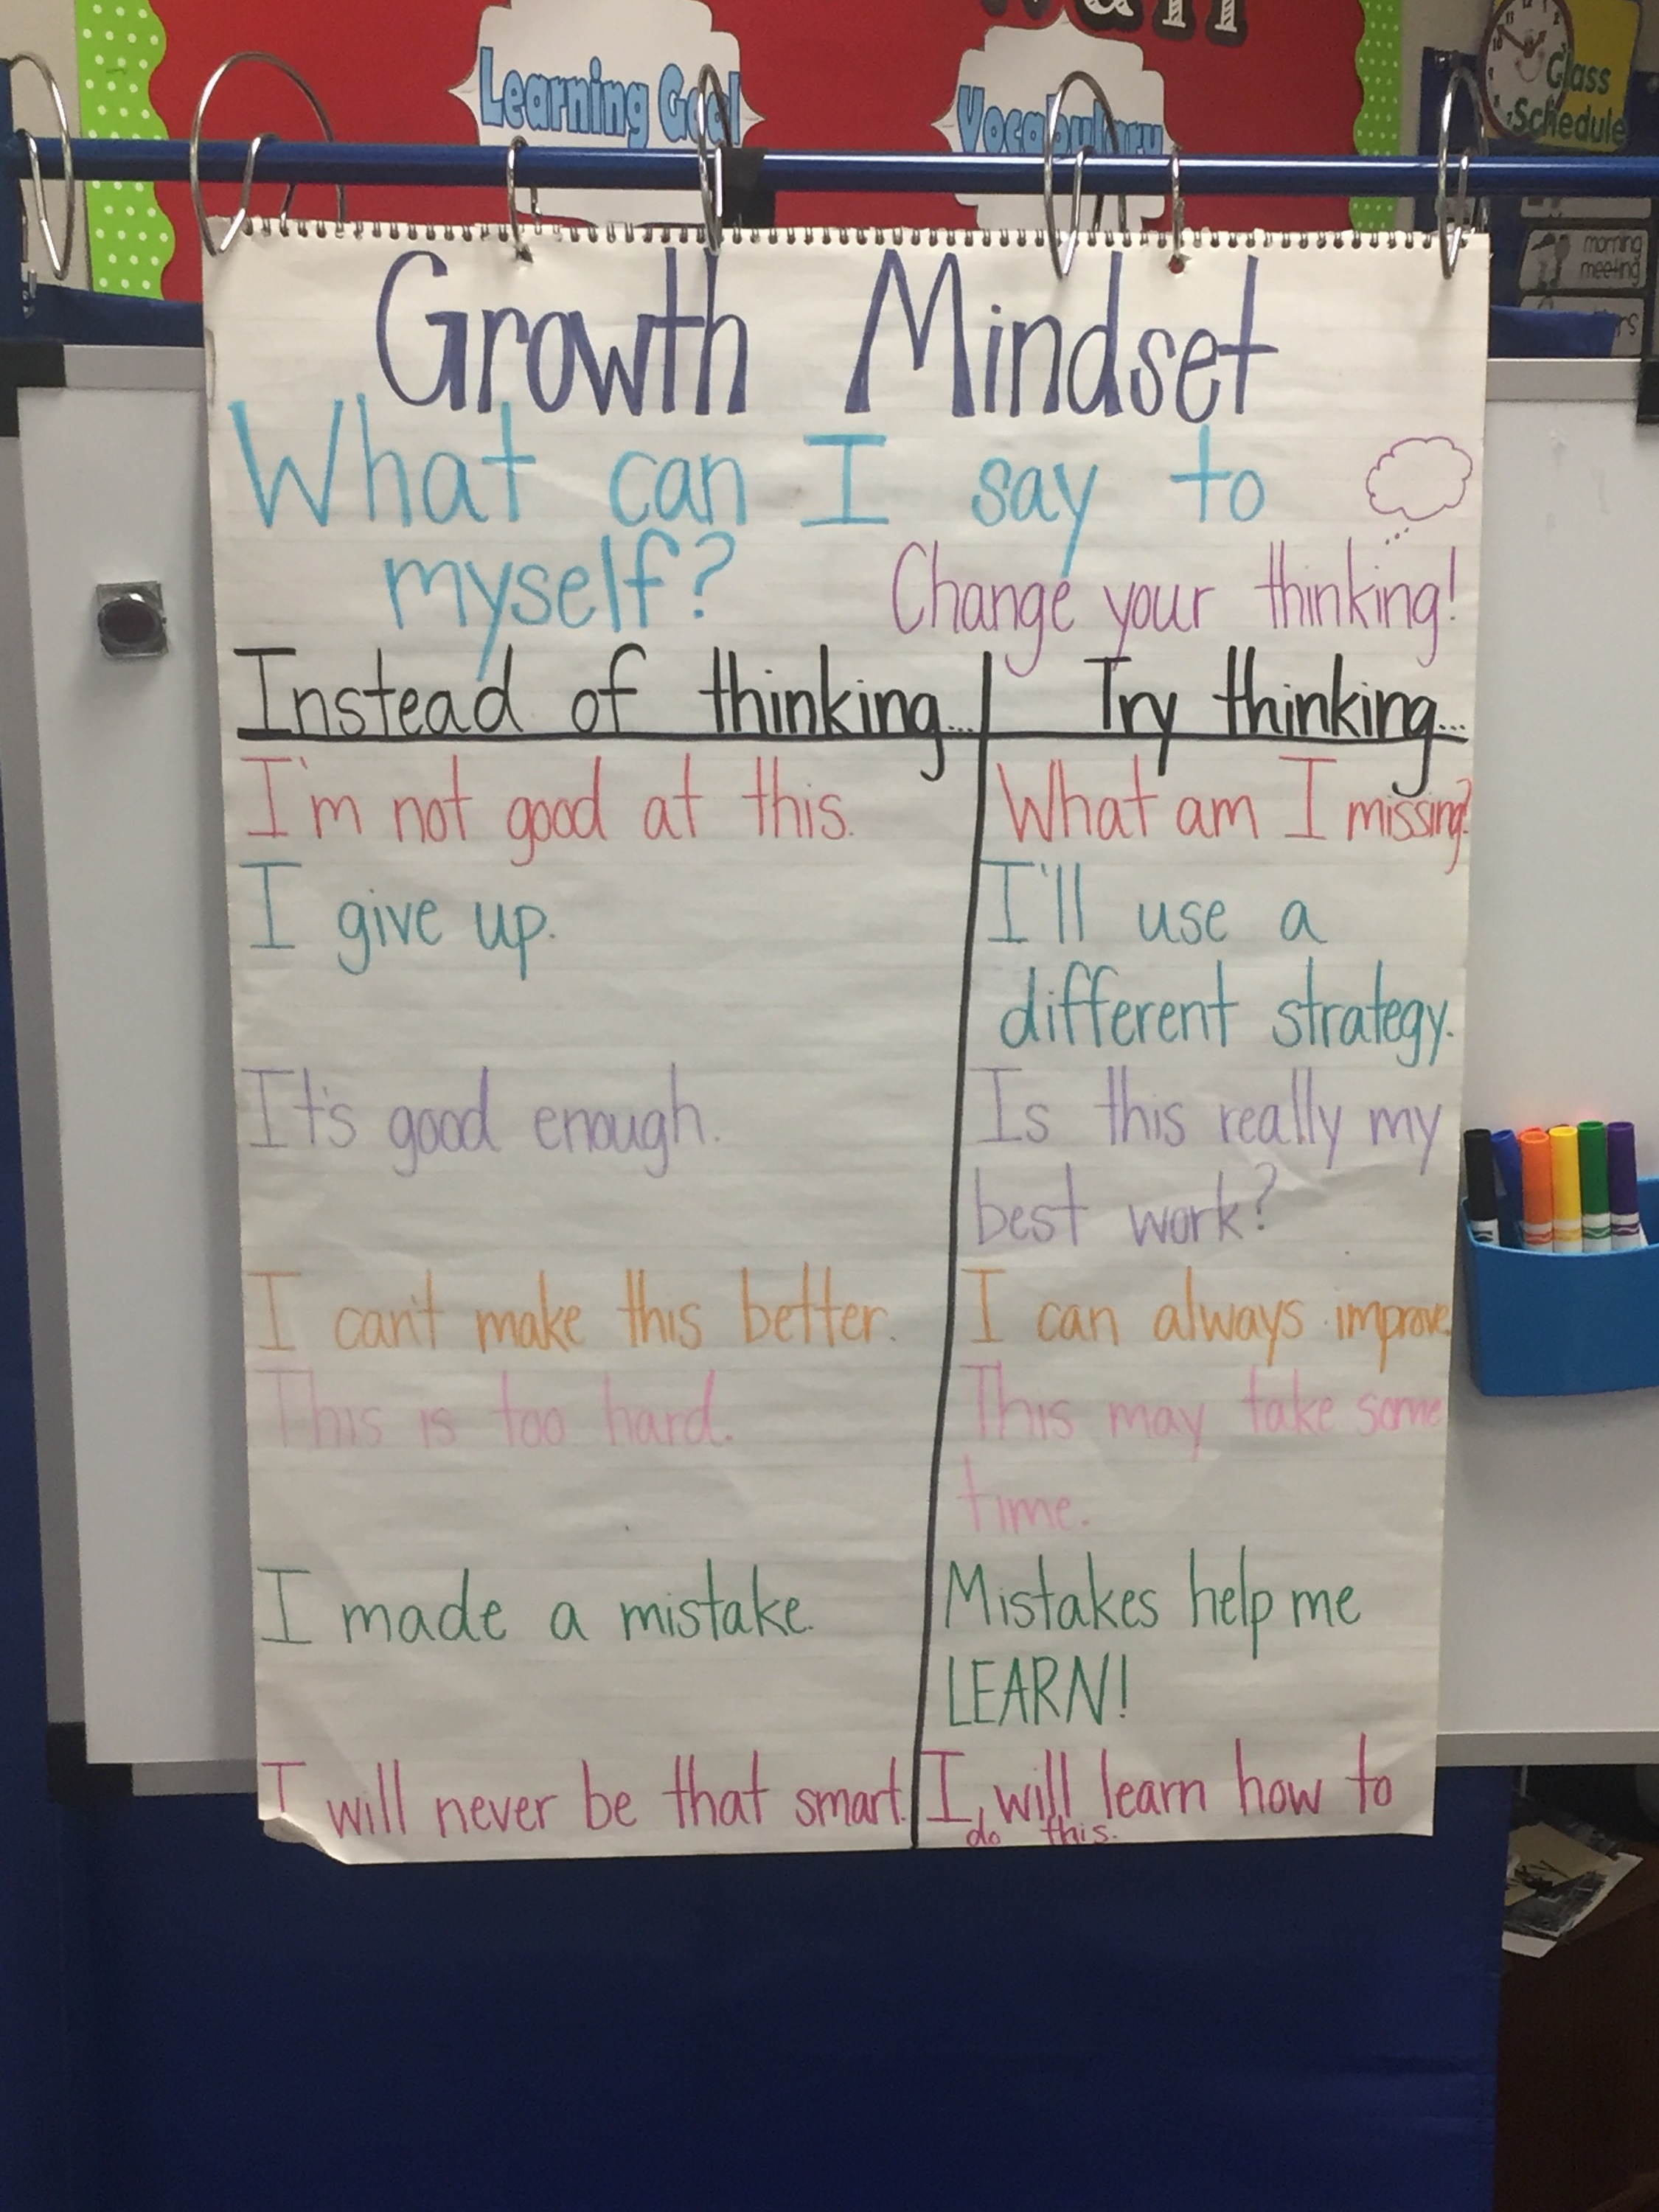 Learning Goal
Vocabulary
Class
Schedule
morning
meeting
Growth Mindset
What can I say to
myself?
Change your thinking!
Instead of thinking... Try thinking...
I'm not good at this. What am I missing?
I give up. I'll use a
different strategy.
It's good enough. Is this really my
best work?
I can't make this better. I can always improve.
This is too hard. This may take some
time.
I made a mistake. Mistakes help me
LEARN!
I will never be that smart. I will learn how to
do this.